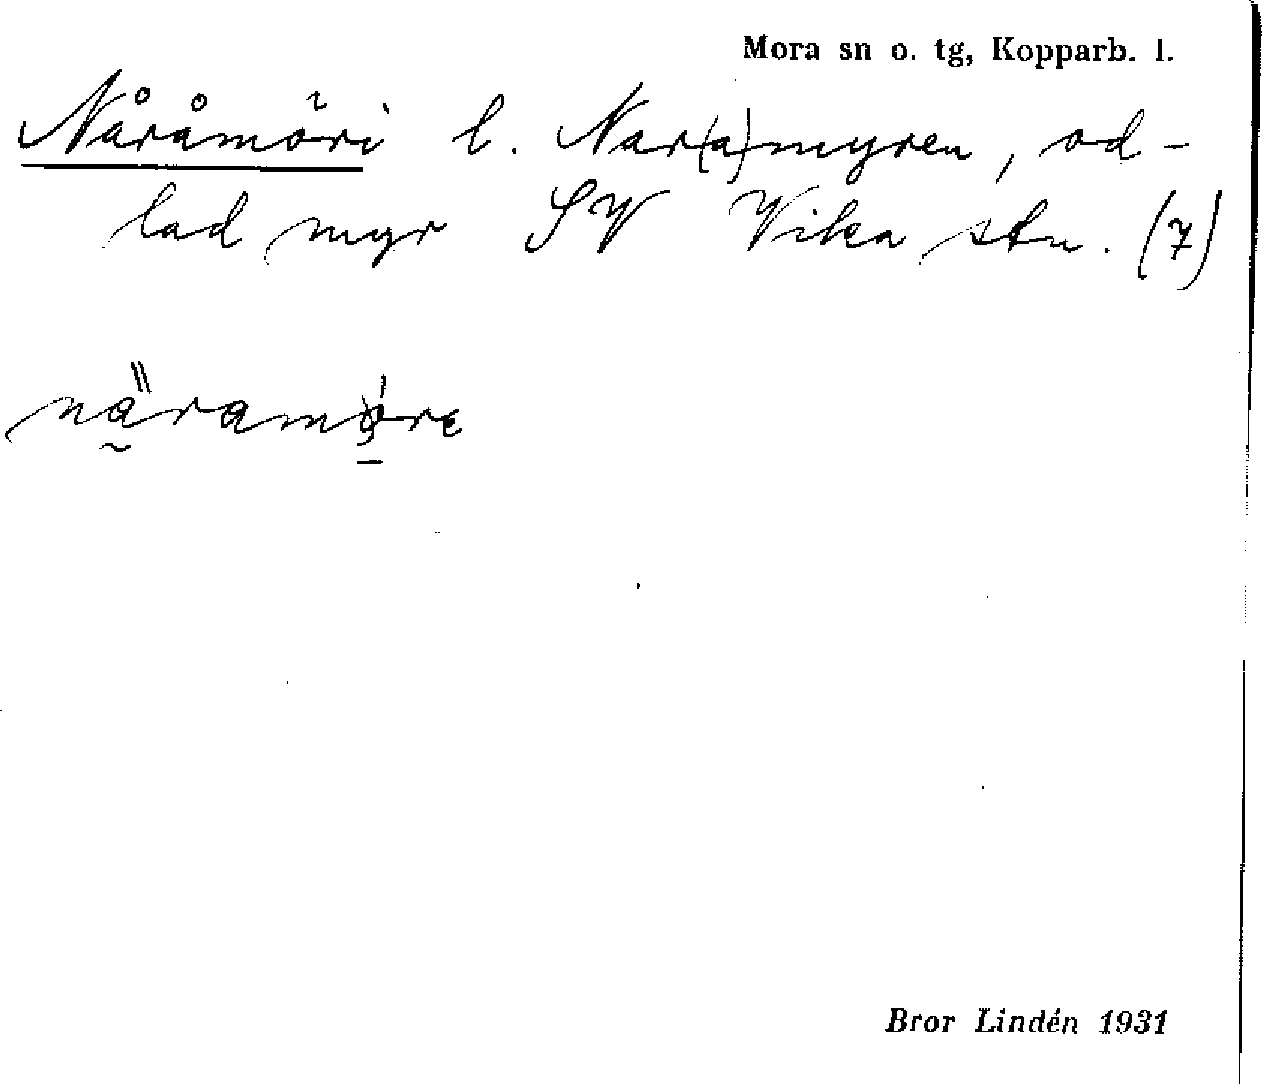 Mora sn o. tg, Kopparb. l.
Nåråmöri l. Nar(a)myren, od-
lad myr SV Vika stn. (7)
Bror Lindén 1931